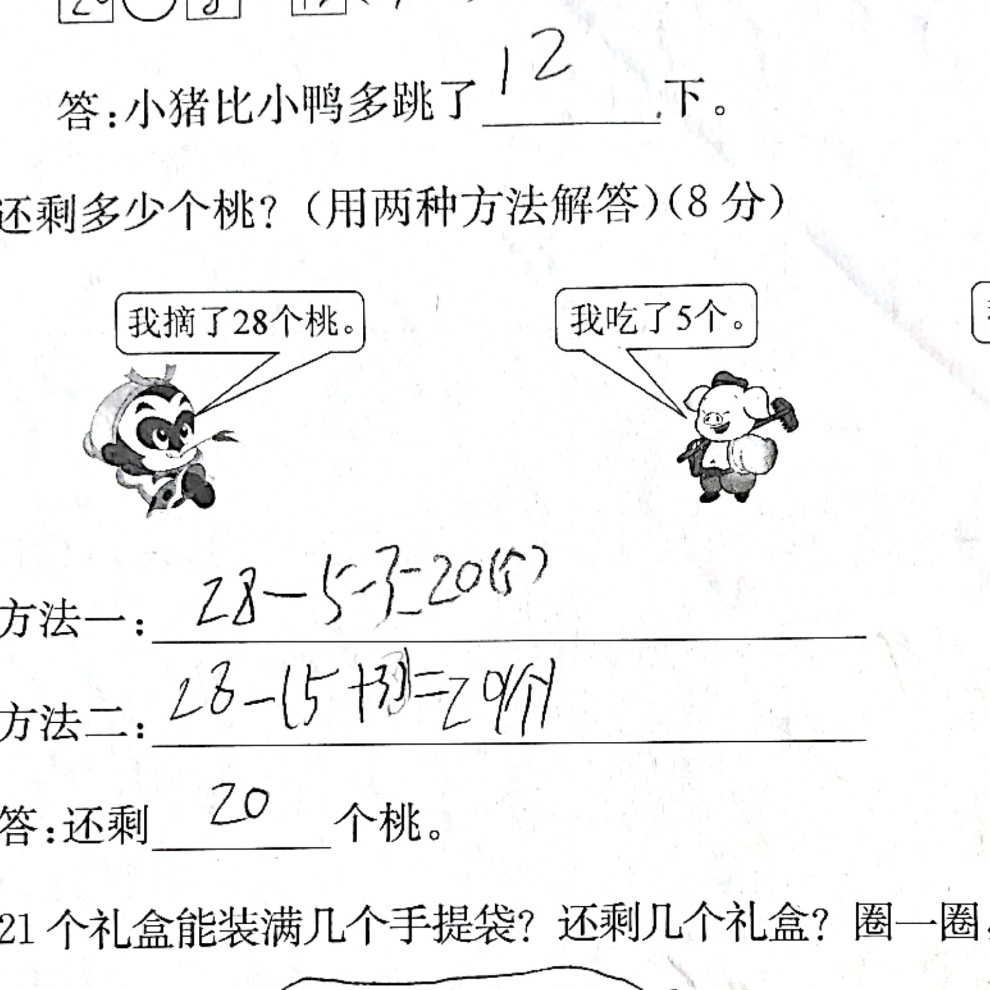 答:小猪比小鸭多跳了 12 下。
还剩多少个桃?(用两种方法解答)(8分)
我摘了28个桃。 我吃了5个。
方法一: 28-5-3=20(个)
方法二: 28-(5+3)=20(个)
答:还剩 20 个桃。
21个礼盒能装满几个手提袋?还剩几个礼盒?圈一圈,